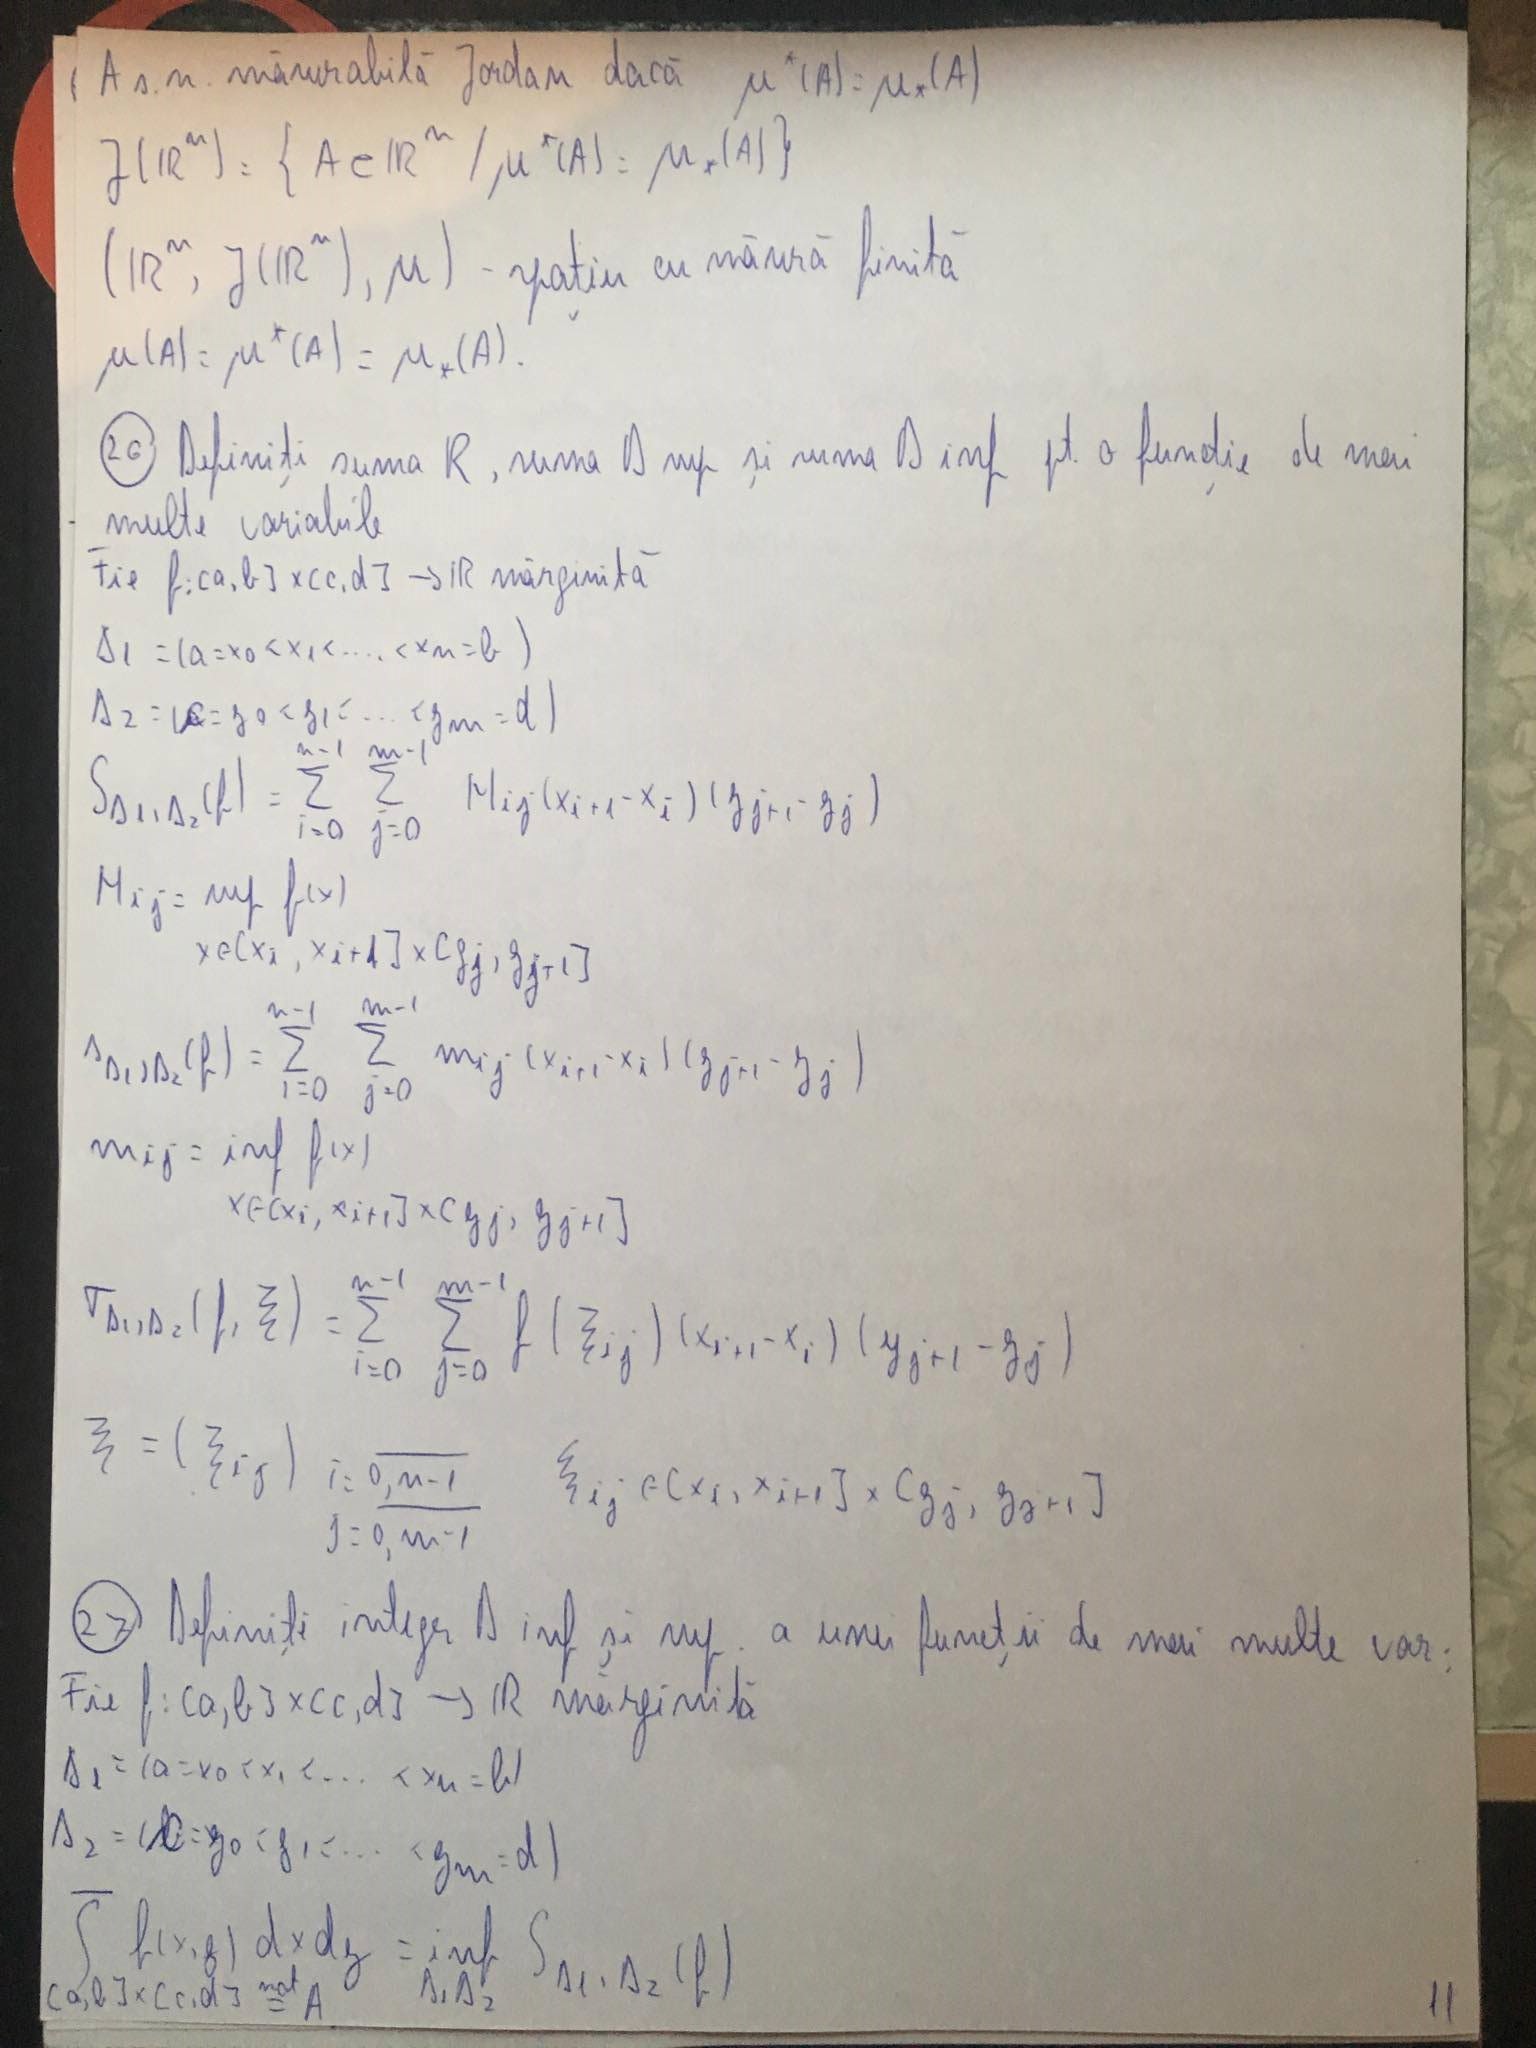 A s.n. măsurabilă Jordan dacă μ*(A) = μ_*(A)
J(ℝⁿ) = { A ⊂ ℝⁿ / μ*(A) = μ_*(A) }
(ℝⁿ, J(ℝⁿ), μ) - spațiu cu măsură finită
μ(A) = μ*(A) = μ_*(A).
26 Definiți suma R, suma D sup și suma D inf pt. o funcție de mai
multe variabile
Fie f: [a,b] × [c,d] → ℝ mărginită
Δ1 = (a = x0 < x1 < .... < xn = b)
Δ2 = (c = y0 < y1 < ... < ym = d)
S_Δ1,Δ2(f) = Σ_{i=0}^{n-1} Σ_{j=0}^{m-1} Mij (xi+1 - xi) (yj+1 - yj)
Mij = sup f(x)
x ∈ [xi, xi+1] × [yj, yj+1]
s_Δ1,Δ2(f) = Σ_{i=0}^{n-1} Σ_{j=0}^{m-1} mij (xi+1 - xi) (yj+1 - yj)
mij = inf f(x)
x ∈ [xi, xi+1] × [yj, yj+1]
σ_Δ1,Δ2(f, ξ) = Σ_{i=0}^{n-1} Σ_{j=0}^{m-1} f(ξij) (xi+1 - xi) (yj+1 - yj)
ξ = (ξij) i = 0,n-1 j = 0,m-1 ξij ∈ [xi, xi+1] × [yj, yj+1]
27 Definiți integr D inf și sup. a unei funcții de mai multe var:
Fie f: [a,b] × [c,d] → ℝ mărginită
Δ1 = (a = x0 < x1 < ... < xn = b)
Δ2 = (c = y0 < y1 < ... < ym = d)
∫̅ f(x,y) dxdy = inf S_Δ1,Δ2(f)
[a,b] × [c,d] not= A Δ1,Δ2
11